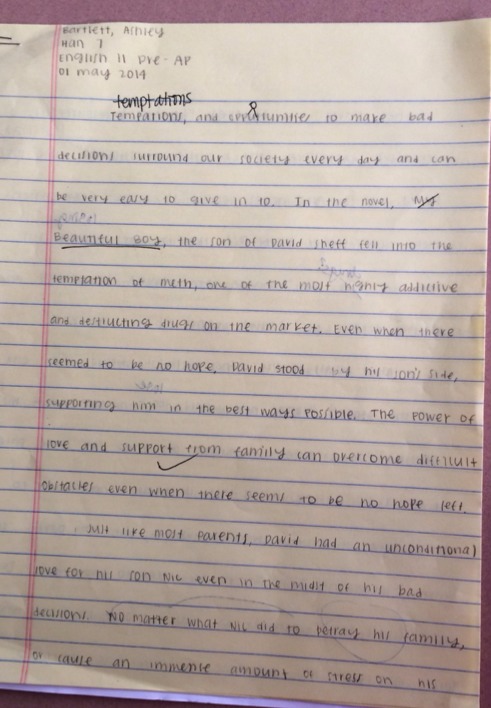 Bartlett, Ashley
Han 7
English 11 Pre-AP
01 May 2014
temptations
Tempations, and oppertunities to make bad
decisions surround our society every day and can
be very easy to give in to. In the novel, My
Beautiful Boy, the son of David Sheff fell into the
temptation of meth, one of the most highly addictive
and destructing drugs on the market. Even when there
seemed to be no hope, David stood by his son's side,
supporting him in the best ways possible. The power of
love and support from family can overcome difficult
obstacles even when there seems to be no hope left.
Just like most parents, David had an unconditional
love for his son Nic even in the midst of his bad
decisions. No matter what Nic did to betray his family,
or cause an immense amount of stress on his